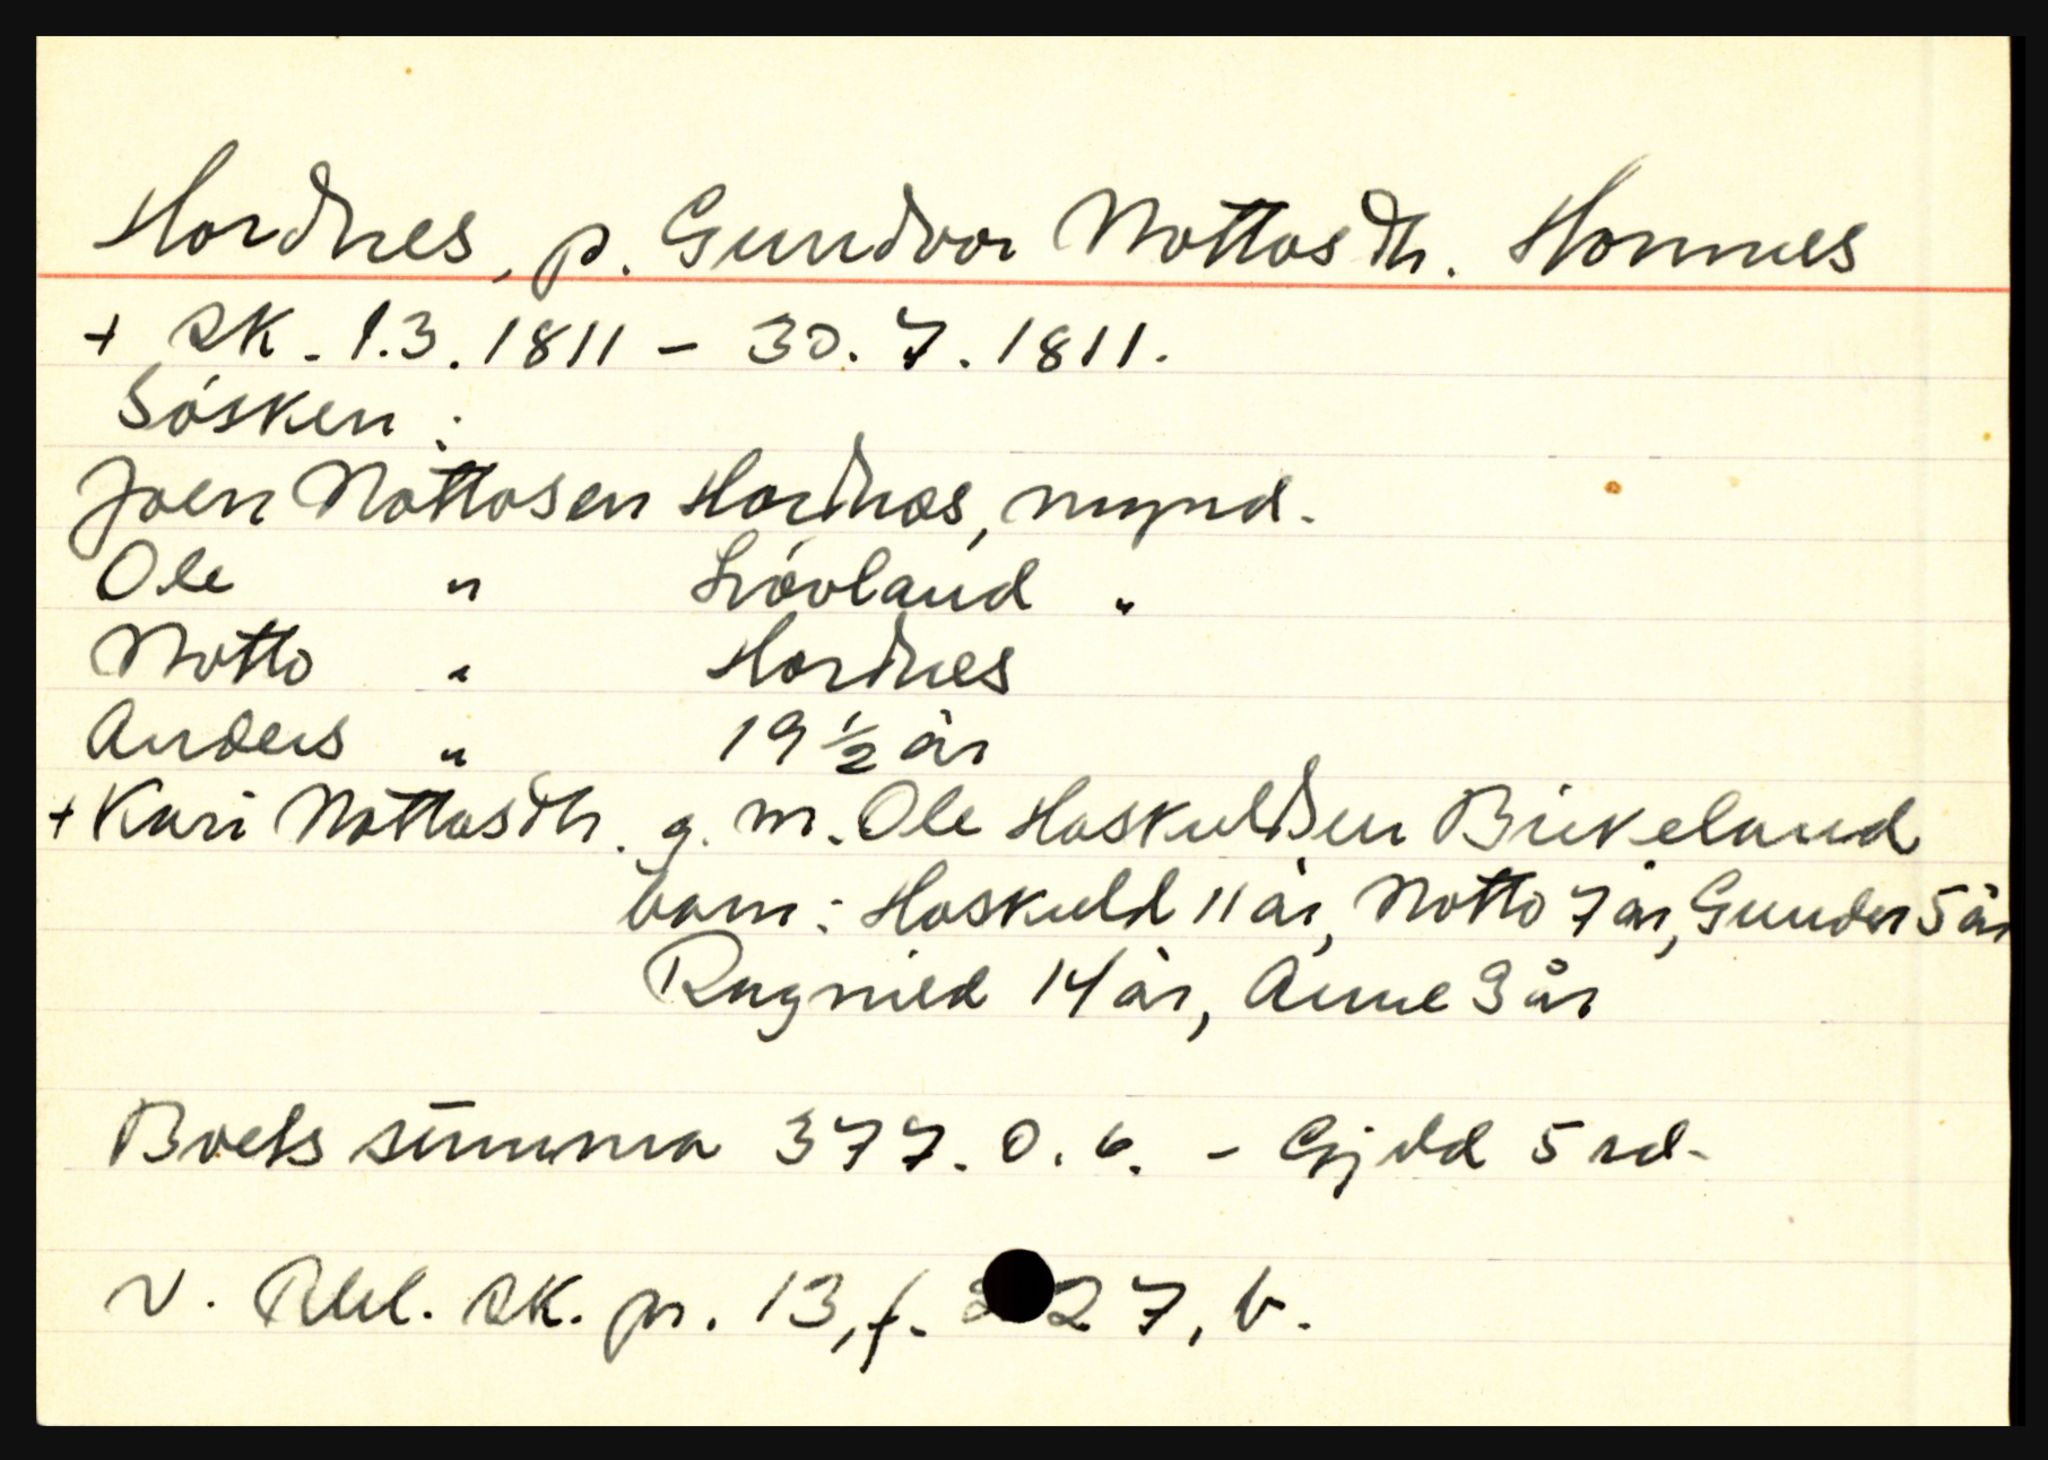 Hordnes, p. Gundvor Nottosdtr. Honnes
+ sk. 1.3.1811 - 30.7.1811.
Sósken:
Joen Nottosen Hordnes, mynd.
Ole " Lióvland "
Notto " Hordnes
Anders " 19 ½ år
+ Kari Nottosdtr. g. m. Ole Hoskuldsen Birkeland
barn: Hoskuld 11 år, Notto 7 år, Gunder 5 år
Ragnild 14 år, Anne 3 år
Boets summa 377. 0. 6. - Gjeld 5 rd.
V. Rbl. sk. pr. 13, f. 27, b.